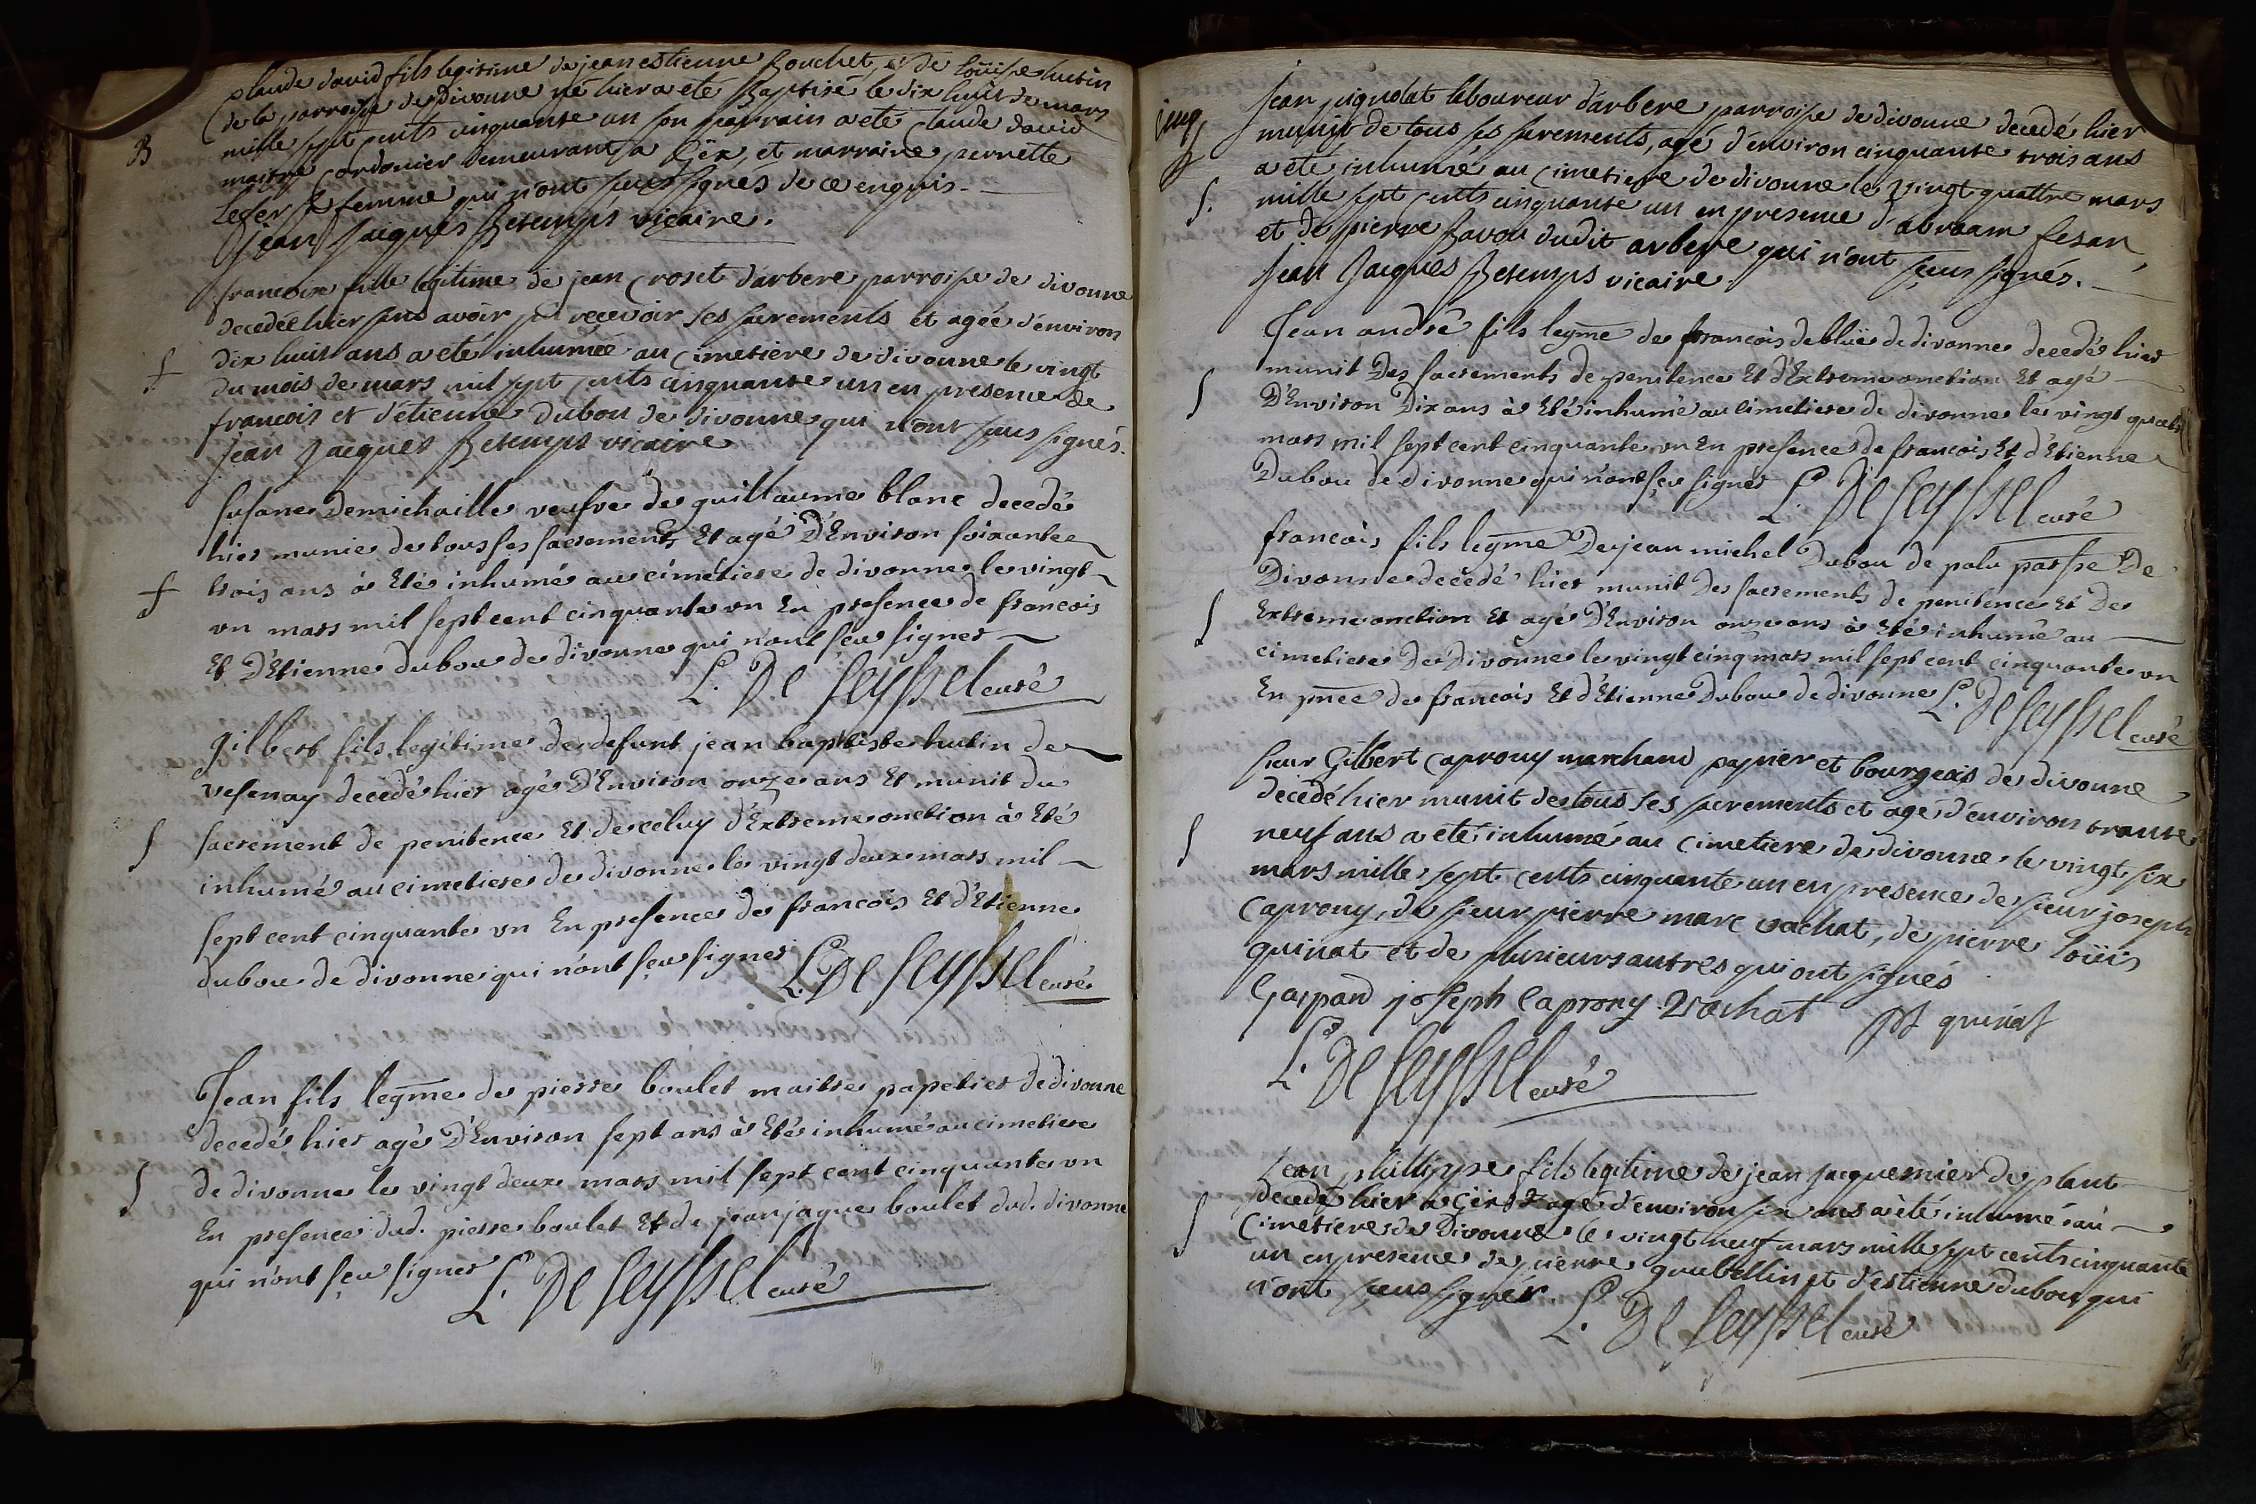 Claude david fils legitime de jean estienne Bouchet, et de loüise hutin
de la parroisse de Divonne né hier a eté Baptisé le dix huit de mars
B
mille sept cents cinquante un son parrain a eté Claude david
maitre Cordonier demeurant a Gëx, et marraine pernette
leger sa femme qui n'ont sceus signes de ce enquis.
Jean Jacques Betemps vicaire.
francoise fille legitime de jean Croset d'arbere parroisse de divonne
decedée hier sans avoir pû recevoir ses sacrements et agée d'environ
dix huit ans a eté inhumée au Cimetiere de divonne le vingt
du mois de mars mil sept cents cinquante un en presence de
francois et d'étienne Dubou de divonne qui n'ont sceus signés.
Jean Jacques Betemps vicaire
susane Demichaille veufve de guillaume blanc decedé
hier munie de tous ses sacrements Et agé D'Environ soixante
trois ans à Eté inhumé au cimétiere de divonne le vingt
un mars mil sept cent cinquante vn En presence de francois
Et D'Etienne dubou de divonne qui n'ont sçeu signer
L. De Seyssel curé
gilbert fils legitime de defunt jean baptiste hutin de
vesenay decedé hier agé D'Environ onze ans Et munit du
sacrement de penitence Et de celuy d'Extreme onction à Eté
inhumé au cimetiere de divonne le vingt deux mars mil
sept cent cinquante vn En presence de francois Et d'Etienne
dubou de divonne qui n'ont sçeu signer L. De Seyssel curé
Jean fils legme de pierre boulet maitre papetier de divonne
decedé hier agé D'Environ sept ans à Eté inhumé au cimetiere
de divonne le vingt deux mars mil sept cent cinquante vn
En presence dud. pierre boulet Et de jean jaques boulet dud. divonne
qui n'ont sçeu signer L. De Seyssel curé
Jean pignolat laboureur d'arbere parroisse de divonne decedé hier
munit de tous ses sacrements, agé d'environ cinquante trois ans
a eté inhumé au Cimetiere de divonne le vingt quattre mars
S.
mille sept cents cinquante un en presence d'abraam
et de pierre Bavou dudit arbere qui n'ont sceus signés.
Jean Jacques Betemps vicaire
Jean andré fils legme de francois deblüe de divonne decedé hier
munit Des sacrements de penitence Et d'Extreme onction Et agé
S
D'Environ Dix ans à Eté inhumé au cimetiere de divonne le vingt quatre
mars mil sept cent cinquante vn En presence de francois Et d'Etienne
Dubou de divonne qui n'ont sçeu signer L. De Seyssel curé
francois fils legme De jean michel Dubou de palu parsse De
Divonne decédé hier munit Des sacrements de penitence Et De
S
Extreme onction Et agé D'Environ onze ans à Eté inhumé au
cimetiere De Divonne le vingt cinq mars mil sept cent cinquante vn
En pnce de francois Et d'Etienne Dubou de divonne L. De Seyssel curé
sieur Gilbert Caprony marchand papier et bourgeois de divonne
decedé hier munit de tous ses sacrements et agé d'environ trante
S
neuf ans a eté inhumé au Cimetiere de divonne le vingt six
mars mille sept cents cinquante un en presence de sieur joseph
Caprony, de sieur pierre marc vachat, de pierre loüis
quinat et de plusieurs autres qui ont signés
Gaspard joseph Caprony Vachat quinat
L. De Seyssel curé
Jean philippe fils legitime de jean jacquemier de plant
decedé hier a Gex agé d'environ six ans a été inhumé au
S
Cimetiere de Divonne le vingt neuf mars mille sept cents cinquante
un en presence de pierre et d'estienne dubou qui
n'ont sceus signer. L. De Seyssel curé